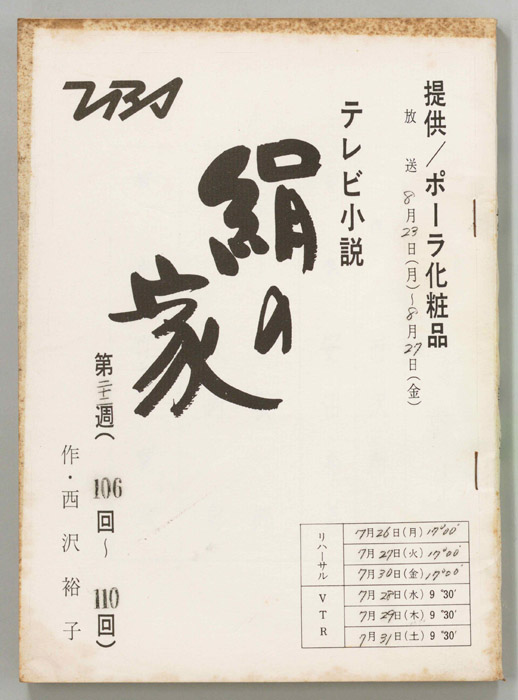 提供／ポーラ化粧品
放送 8月23日(月)〜8月27日(金)
テレビ小説
絹の
家
TBS
第二十二週(106回〜110回)
作・西沢裕子
リハーサル
7月26日(月)17°00'
7月27日(火)17°00'
7月30日(金)17°00'
VTR
7月28日(水) 9°30'
7月29日(木) 9°30'
7月31日(土) 9°30'